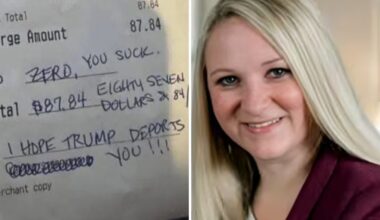 Total 87.84
rge Amount
87.84
ZERO, YOU SUCK.
tal $87.84 EIGHTY SEVEN
DOLLARS & 84/
I HOPE TRUMP DEPORTS
YOU!!!
erchant copy